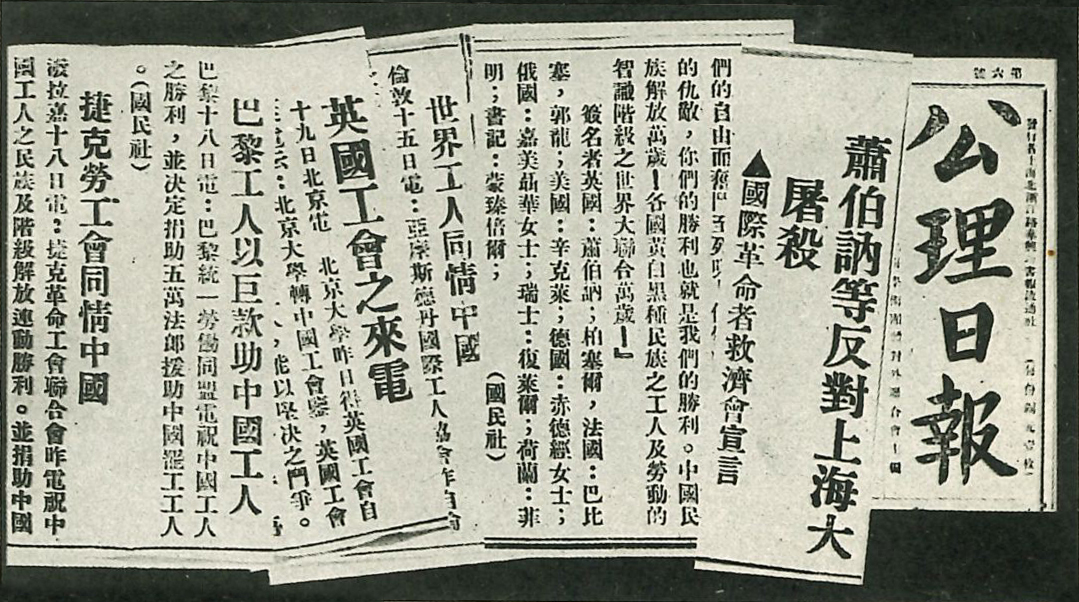 第六號
公理日報
蕭伯訥等反對上海大
屠殺
▲國際革命者救濟會宣言
們的自由而奮鬥
的仇敵，你們的勝利也就是我們的勝利。中國民
族解放萬歲！各國黃白黑種民族之工人及勞動的
智識階級之世界大聯合萬歲！』
簽名者英國：蕭伯訥；柏塞爾，法國：巴比
塞，郭龍；美國：辛克萊；德國：赤德經女士；
俄國：嘉美聶華女士；瑞士：復萊爾；荷蘭：菲
明；書記：蒙臻倍爾；
（國民社）
世界工人同情中國
倫敦十五日電：亞摩斯德丹國際工人
英國工會之來電
十九日北京電　北京大學昨日得英國工會自
：北京大學轉中國工會鑒，英國工會
以堅決之鬥爭。
巴黎工人以巨款助中國工人
巴黎十八日電：巴黎統一勞働同盟電祝中國工人
之勝利，並決定捐助五萬法郎援助中國罷工工人
。（國民社）
捷克勞工會同情中國
潑拉嘉十八日電：捷克革命工會聯合會昨電祝中
國工人之民族及階級解放運動勝利。並捐助中國